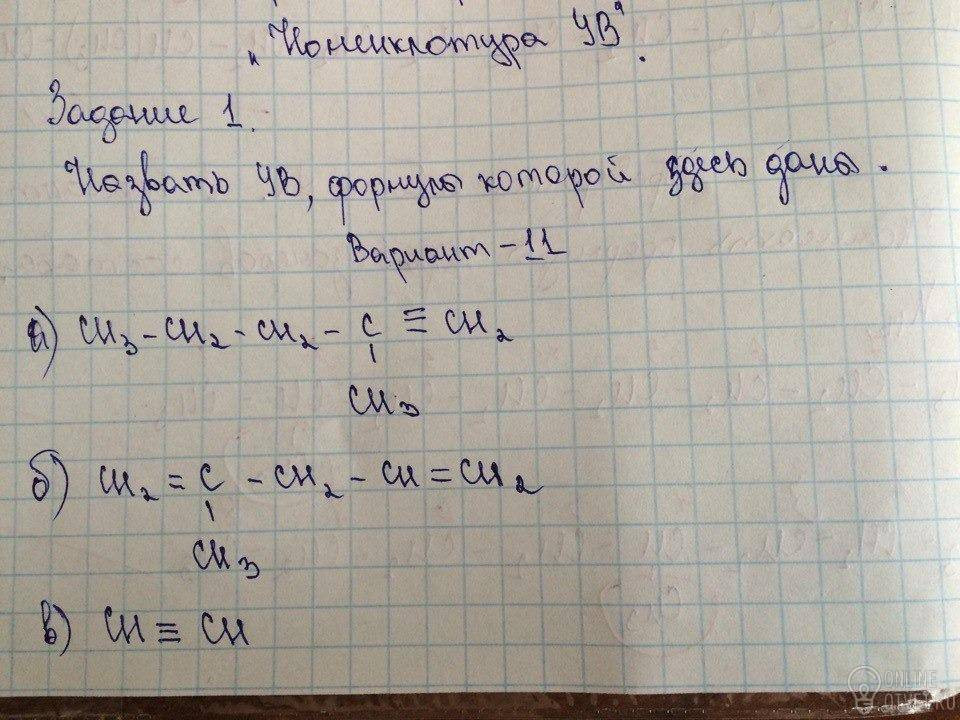 „Номенклотура УВ“.
Задание 1.
Назвать УВ, формула которой здесь дана.
Вариант - 11
а) CH₃ - CH₂ - CH₂ - C ≡ CH₂
CH₃
б) CH₂ = C - CH₂ - CH = CH₂
CH₃
в) CH ≡ CH
ONLINE
OTVET.RU